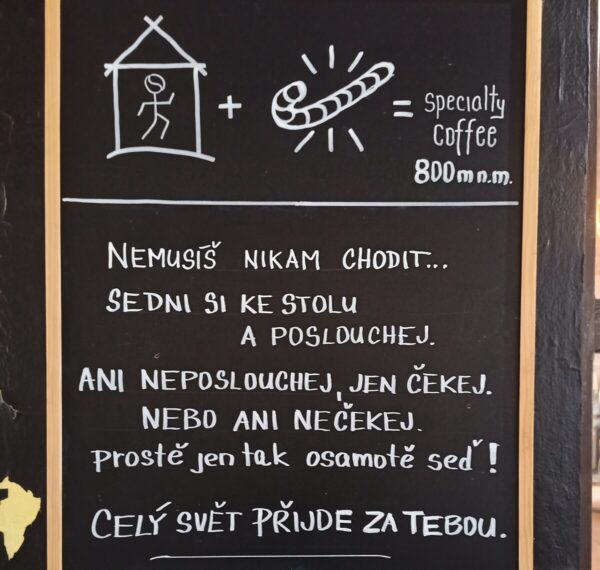 + = Specialty
coffee
800 m n.m.
NEMUSÍŠ NIKAM CHODIT...
SEDNI SI KE STOLU
A POSLOUCHEJ.
ANI NEPOSLOUCHEJ, JEN ČEKEJ.
NEBO ANI NEČEKEJ.
prostě jen tak osamotě seď!
CELÝ SVĚT PŘIJDE ZA TEBOU.